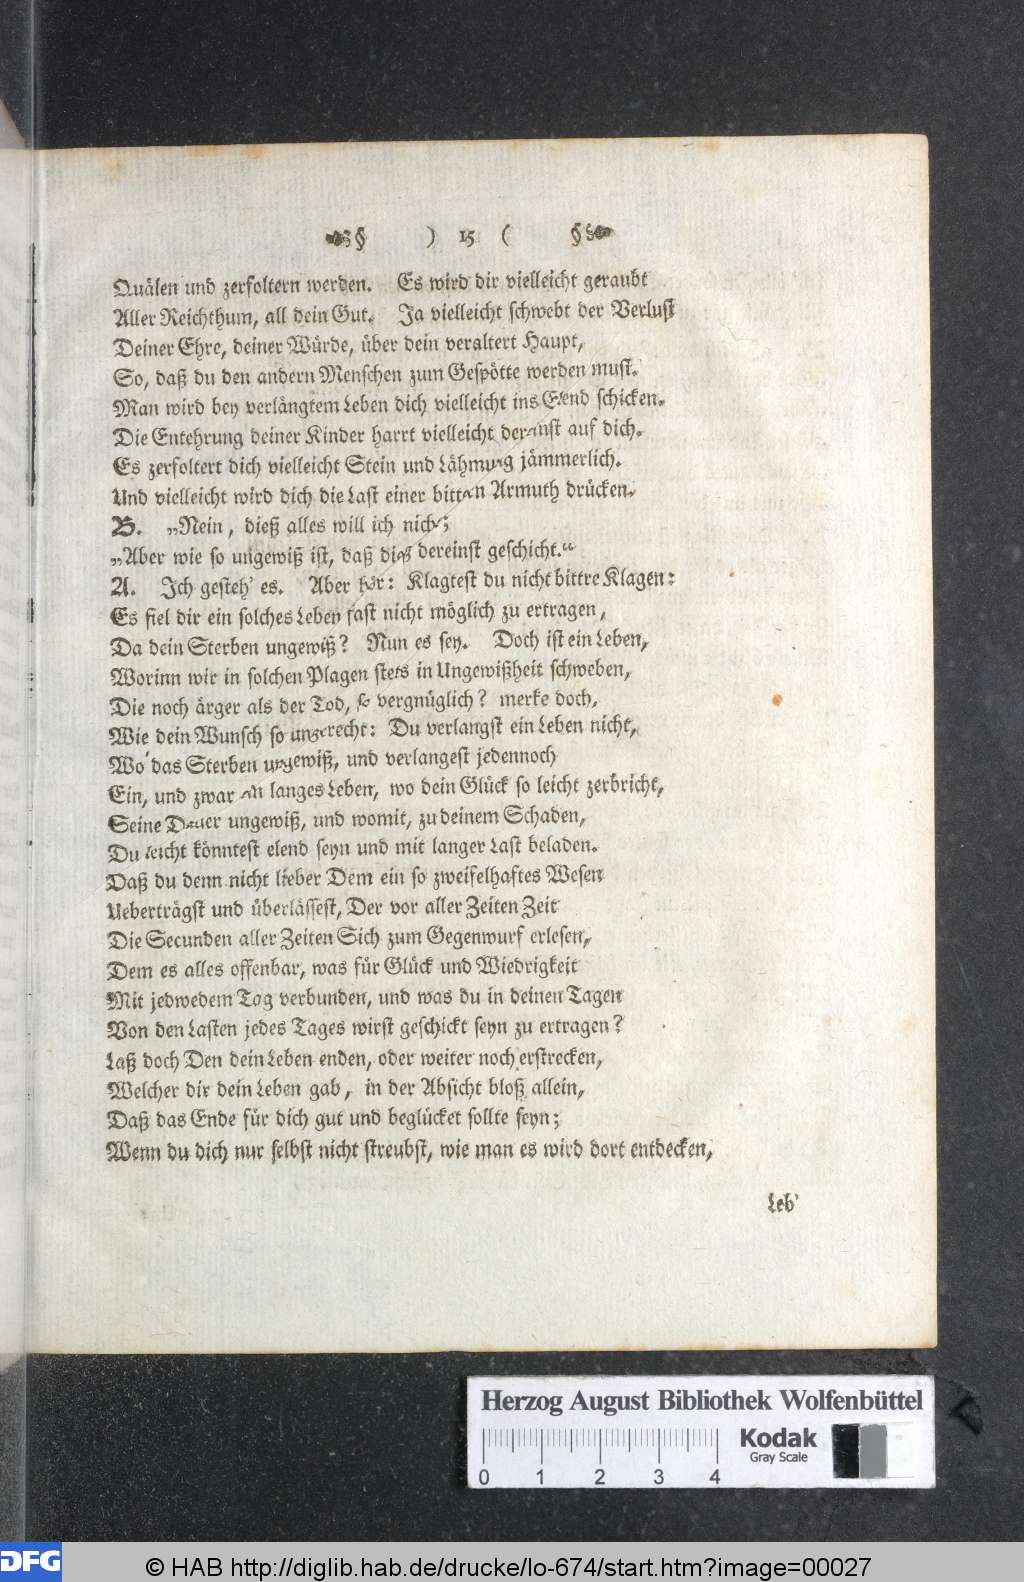 ) 15 (
Quälen und zerfoltern werden. Es wird dir vielleicht geraubt
Aller Reichthum, all dein Gut. Ja vielleicht schwebt der Verlust
Deiner Ehre, deiner Würde, über dein veraltert Haupt,
So, daß du den andern Menschen zum Gespötte werden must.
Man wird bey verlängtem Leben dich vielleicht ins Elend schicken.
Die Entehrung deiner Kinder harrt vielleicht dereinst auf dich.
Es zerfoltert dich vielleicht Stein und Lähmung jämmerlich.
Und vielleicht wird dich die Last einer bittern Armuth drücken.
B. „Nein, dieß alles will ich nicht;
„Aber wie so ungewiß ist, daß dieß dereinst geschicht.“
A. Ich gesteh' es. Aber hör: Klagtest du nicht bittre Klagen:
Es fiel dir ein solches Leben fast nicht möglich zu ertragen,
Da dein Sterben ungewiß? Nun es sey. Doch ist ein Leben,
Worinn wir in solchen Plagen stets in Ungewißheit schweben,
Die noch ärger als der Tod, so vergnüglich? merke doch,
Wie dein Wunsch so ungerecht: Du verlangst ein Leben nicht,
Wo das Sterben ungewiß, und verlangest jedennoch
Ein, und zwar ein langes Leben, wo dein Glück so leicht zerbricht,
Seine Dauer ungewiß, und womit, zu deinem Schaden,
Du leicht könntest elend seyn und mit langer Last beladen.
Daß du denn nicht lieber Dem ein so zweifelhaftes Wesen
Ueberträgst und überlässest, Der vor aller Zeiten Zeit
Die Secunden aller Zeiten Sich zum Gegenwurf erlesen,
Dem es alles offenbar, was für Glück und Wiedrigkeit
Mit jedwedem Tag verbunden, und was du in deinen Tagen
Von den Lasten jedes Tages wirst geschickt seyn zu ertragen?
Laß doch Den dein Leben enden, oder weiter noch erstrecken,
Welcher dir dein Leben gab, in der Absicht bloß allein,
Daß das Ende für dich gut und beglücket sollte seyn;
Wenn du dich nur selbst nicht streubst, wie man es wird dort entdecken,
Leb'
Herzog August Bibliothek Wolfenbüttel
Kodak
Gray Scale
0 1 2 3 4
DFG
© HAB http://diglib.hab.de/drucke/lo-674/start.htm?image=00027